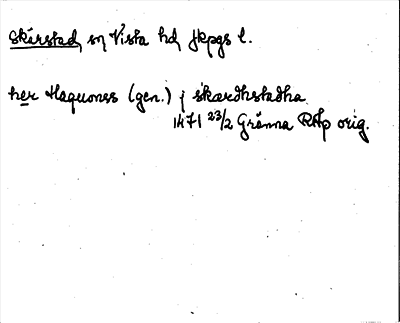 Skärstad, sn Vista hd, Jkpgs l.
her Haquonss (gen.) j skærdhstadha
1471 23/2 Gränna RAp orig.